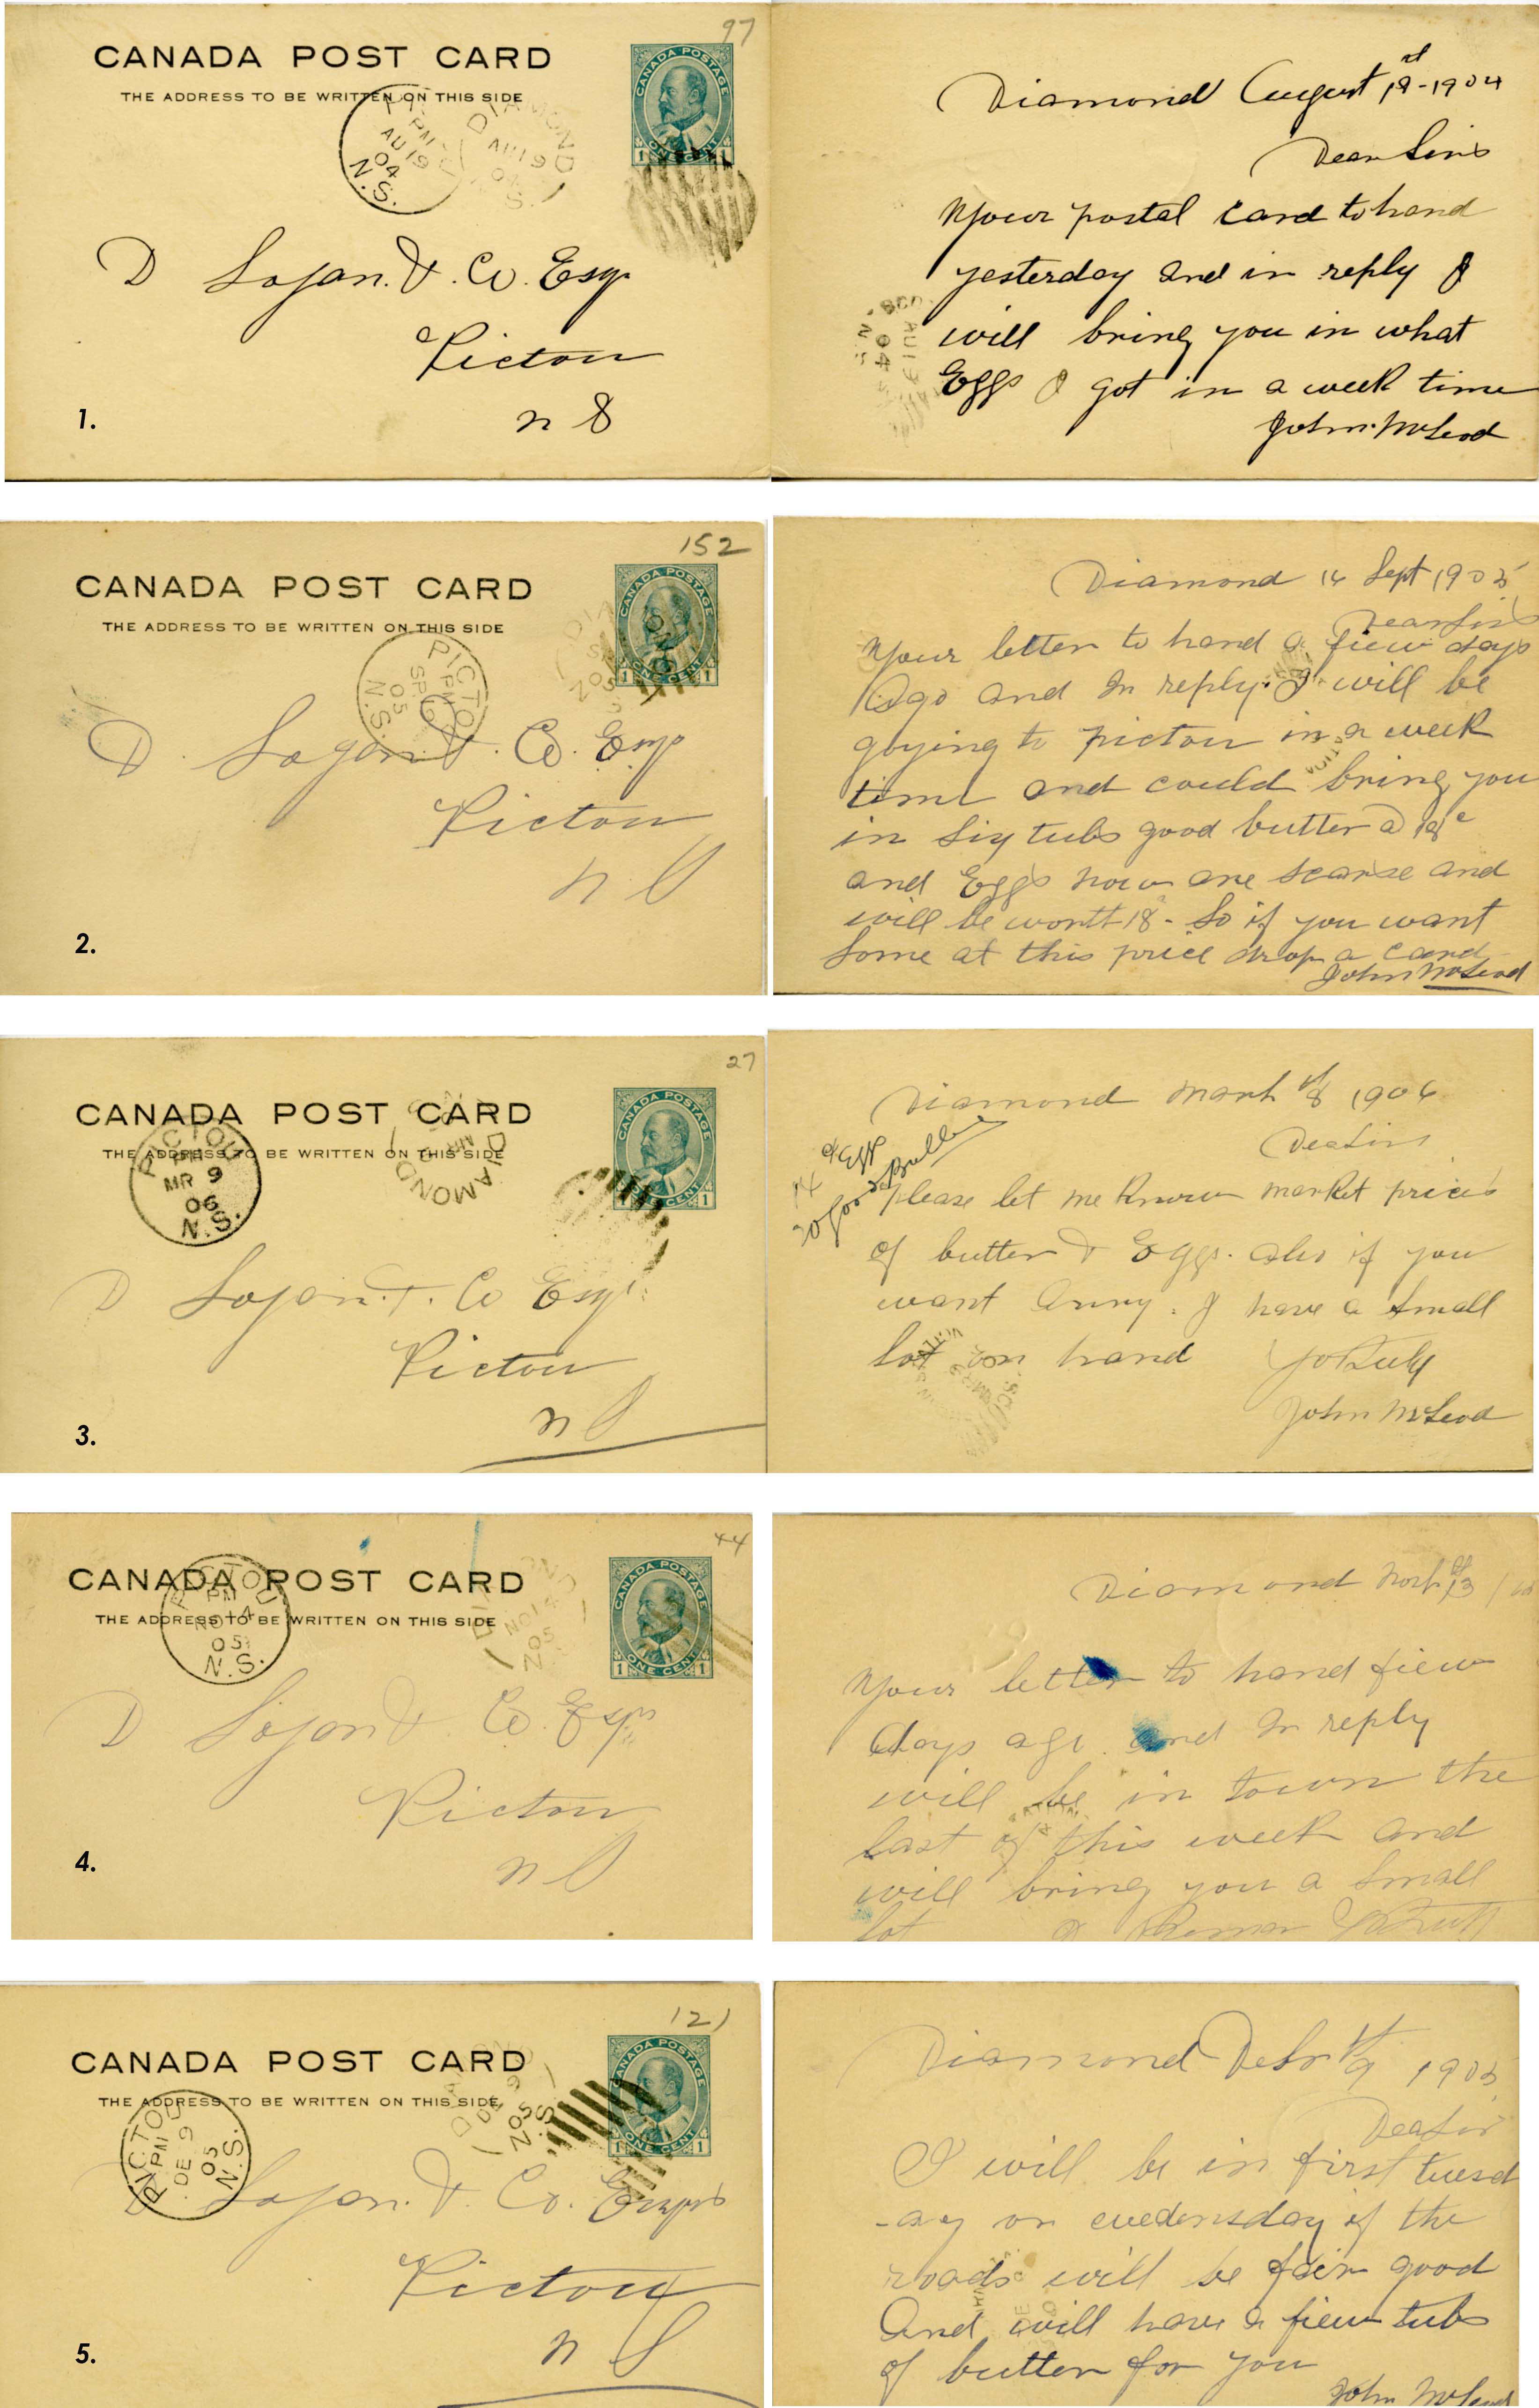 97
CANADA POST CARD
THE ADDRESS TO BE WRITTEN ON THIS SIDE
CANADA POSTAGE
1 ONE CENT 1
PM
AU 19
04
N.S.
DIAMOND
AU 19
04
N.S.
D Logan. & . Co. Esqr
Pictou
n S
1.
Diamond August 18 - 1904
Dear Sirs
Your postal card to hand
yesterday and in reply I
will bring you in what
Eggs I got in a week time
John McLeod
AU 19
04
152
CANADA POST CARD
THE ADDRESS TO BE WRITTEN ON THIS SIDE
CANADA POSTAGE
1 ONE CENT 1
PICTOU
PM
SP
05
N.S.
D. Logan & . Co. Esqr
Pictou
n S
2.
Diamond 14 Sept 1905
Dear Sirs
Your letter to hand a fiew days
Ago and In reply. I will be
goying to pictou in a week
time and could bring you
in Six tubs good butter @ 18c
and Eggs now are scarse and
will be wortt 18 - So if you want
Some at this price drop a card
John McLeod
27
CANADA POST CARD
THE ADDRESS TO BE WRITTEN ON THIS SIDE
CANADA POSTAGE
1 ONE CENT 1
PICTOU
PM
MR 9
06
N.S.
DIAMOND
D Logan. & . Co Esqr
Pictou
n S
3.
Diamond March 8 1906
Dear Sirs
Please let me know market prices
of butter & Eggs. also if you
want Anny. I have a Small
Lot on hand
John McLeod
44
CANADA POST CARD
THE ADDRESS TO BE WRITTEN ON THIS SIDE
CANADA POSTAGE
1 ONE CENT 1
PICTOU
PM
NO 14
05
N.S.
NO 14
05
D Logan & Co. Esqr
Pictou
n S
4.
Diamond 13
Your letter to hand fiew
days ago and In reply
will be in town the
Last of this week and
will bring you a Small
Lot
121
CANADA POST CARD
THE ADDRESS TO BE WRITTEN ON THIS SIDE
CANADA POSTAGE
1 ONE CENT 1
PICTOU
PM
DE 9
05
N.S.
DE 9
05
N.S.
D Logan. & . Co. Esqrs
Pictou
n S
5.
Diamond 9 1905
Dear Sir
I will be in first tuesd
-ay or wedensday if the
roads will be fair good
And will have a fiew tubs
of butter for you
John McLeod